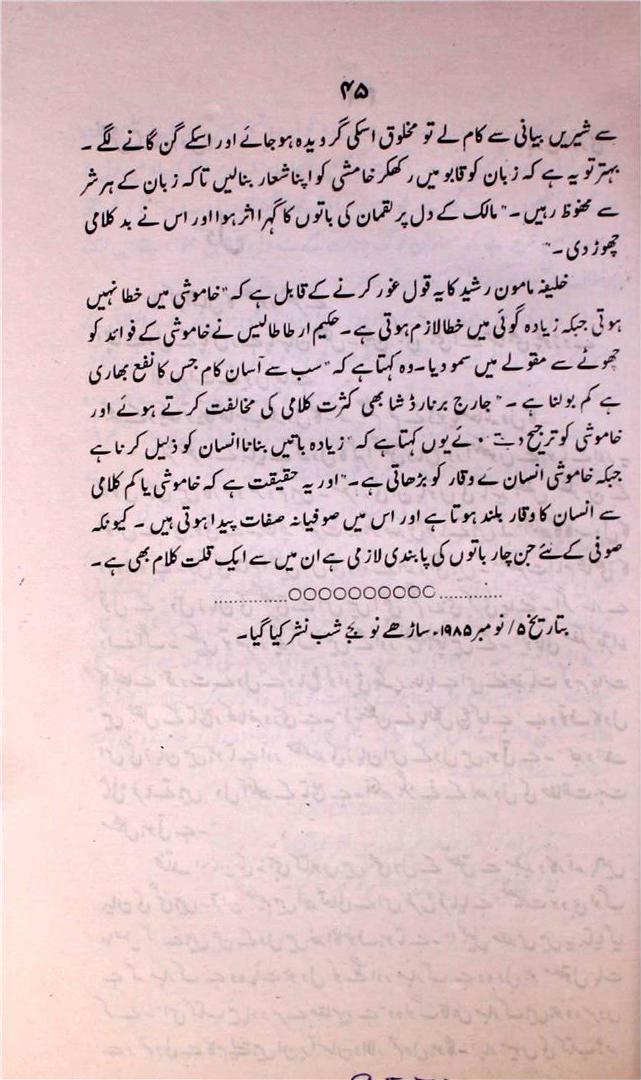 ۴۵
سے شیریں بیانی سے کام لے تو مخلوق اسکی گرویدہ ہو جائے اور اسکے گن گانے لگے ۔
بہتر تو یہ ہے کہ زبان کو قابو میں رکھکر خامشی کو اپنا شعار بنالیں تاکہ زبان کے ہر شر
سے محفوظ رہیں ۔" مالک کے دل پر لقمان کی باتوں کا گہرا اثر ہوا اور اس نے بد کلامی
چھوڑ دی ۔"
خلیفہ مامون رشید کا یہ قول غور کرنے کے قابل ہے کہ "خاموشی میں خطا نہیں
ہوتی جبکہ زیادہ گوئی میں خطا لازم ہوتی ہے ۔ حکیم ارطاطالیس نے خاموشی کے فوائد کو
چھوٹے سے مقولے میں سمو دیا ۔ وہ کہتا ہے کہ "سب سے آسان کام جس کا نفع بھاری
ہے کم بولنا ہے ۔" جارج برنارڈ شا بھی کثرت کلامی کی مخالفت کرتے ہوئے اور
خاموشی کو ترجیح یوں کہتا ہے کہ "زیادہ باتیں بنانا انسان کو ذلیل کرنا ہے
جبکہ خاموشی انسان کے وقار کو بڑھاتی ہے ۔" اور یہ حقیقت ہے کہ خاموشی یا کم کلامی
سے انسان کا وقار بلند ہوتا ہے اور اس میں صوفیانہ صفات پیدا ہوتی ہیں ۔ کیونکہ
صوفی کے لئے جن چار باتوں کی پابندی لازمی ہے ان میں سے ایک قلت کلام بھی ہے ۔
............○○○○○○○○○○............
بتاریخ ۵/ نومبر ۱۹۸۵ء ساڑھے نو بجے شب نشر کیا گیا ۔